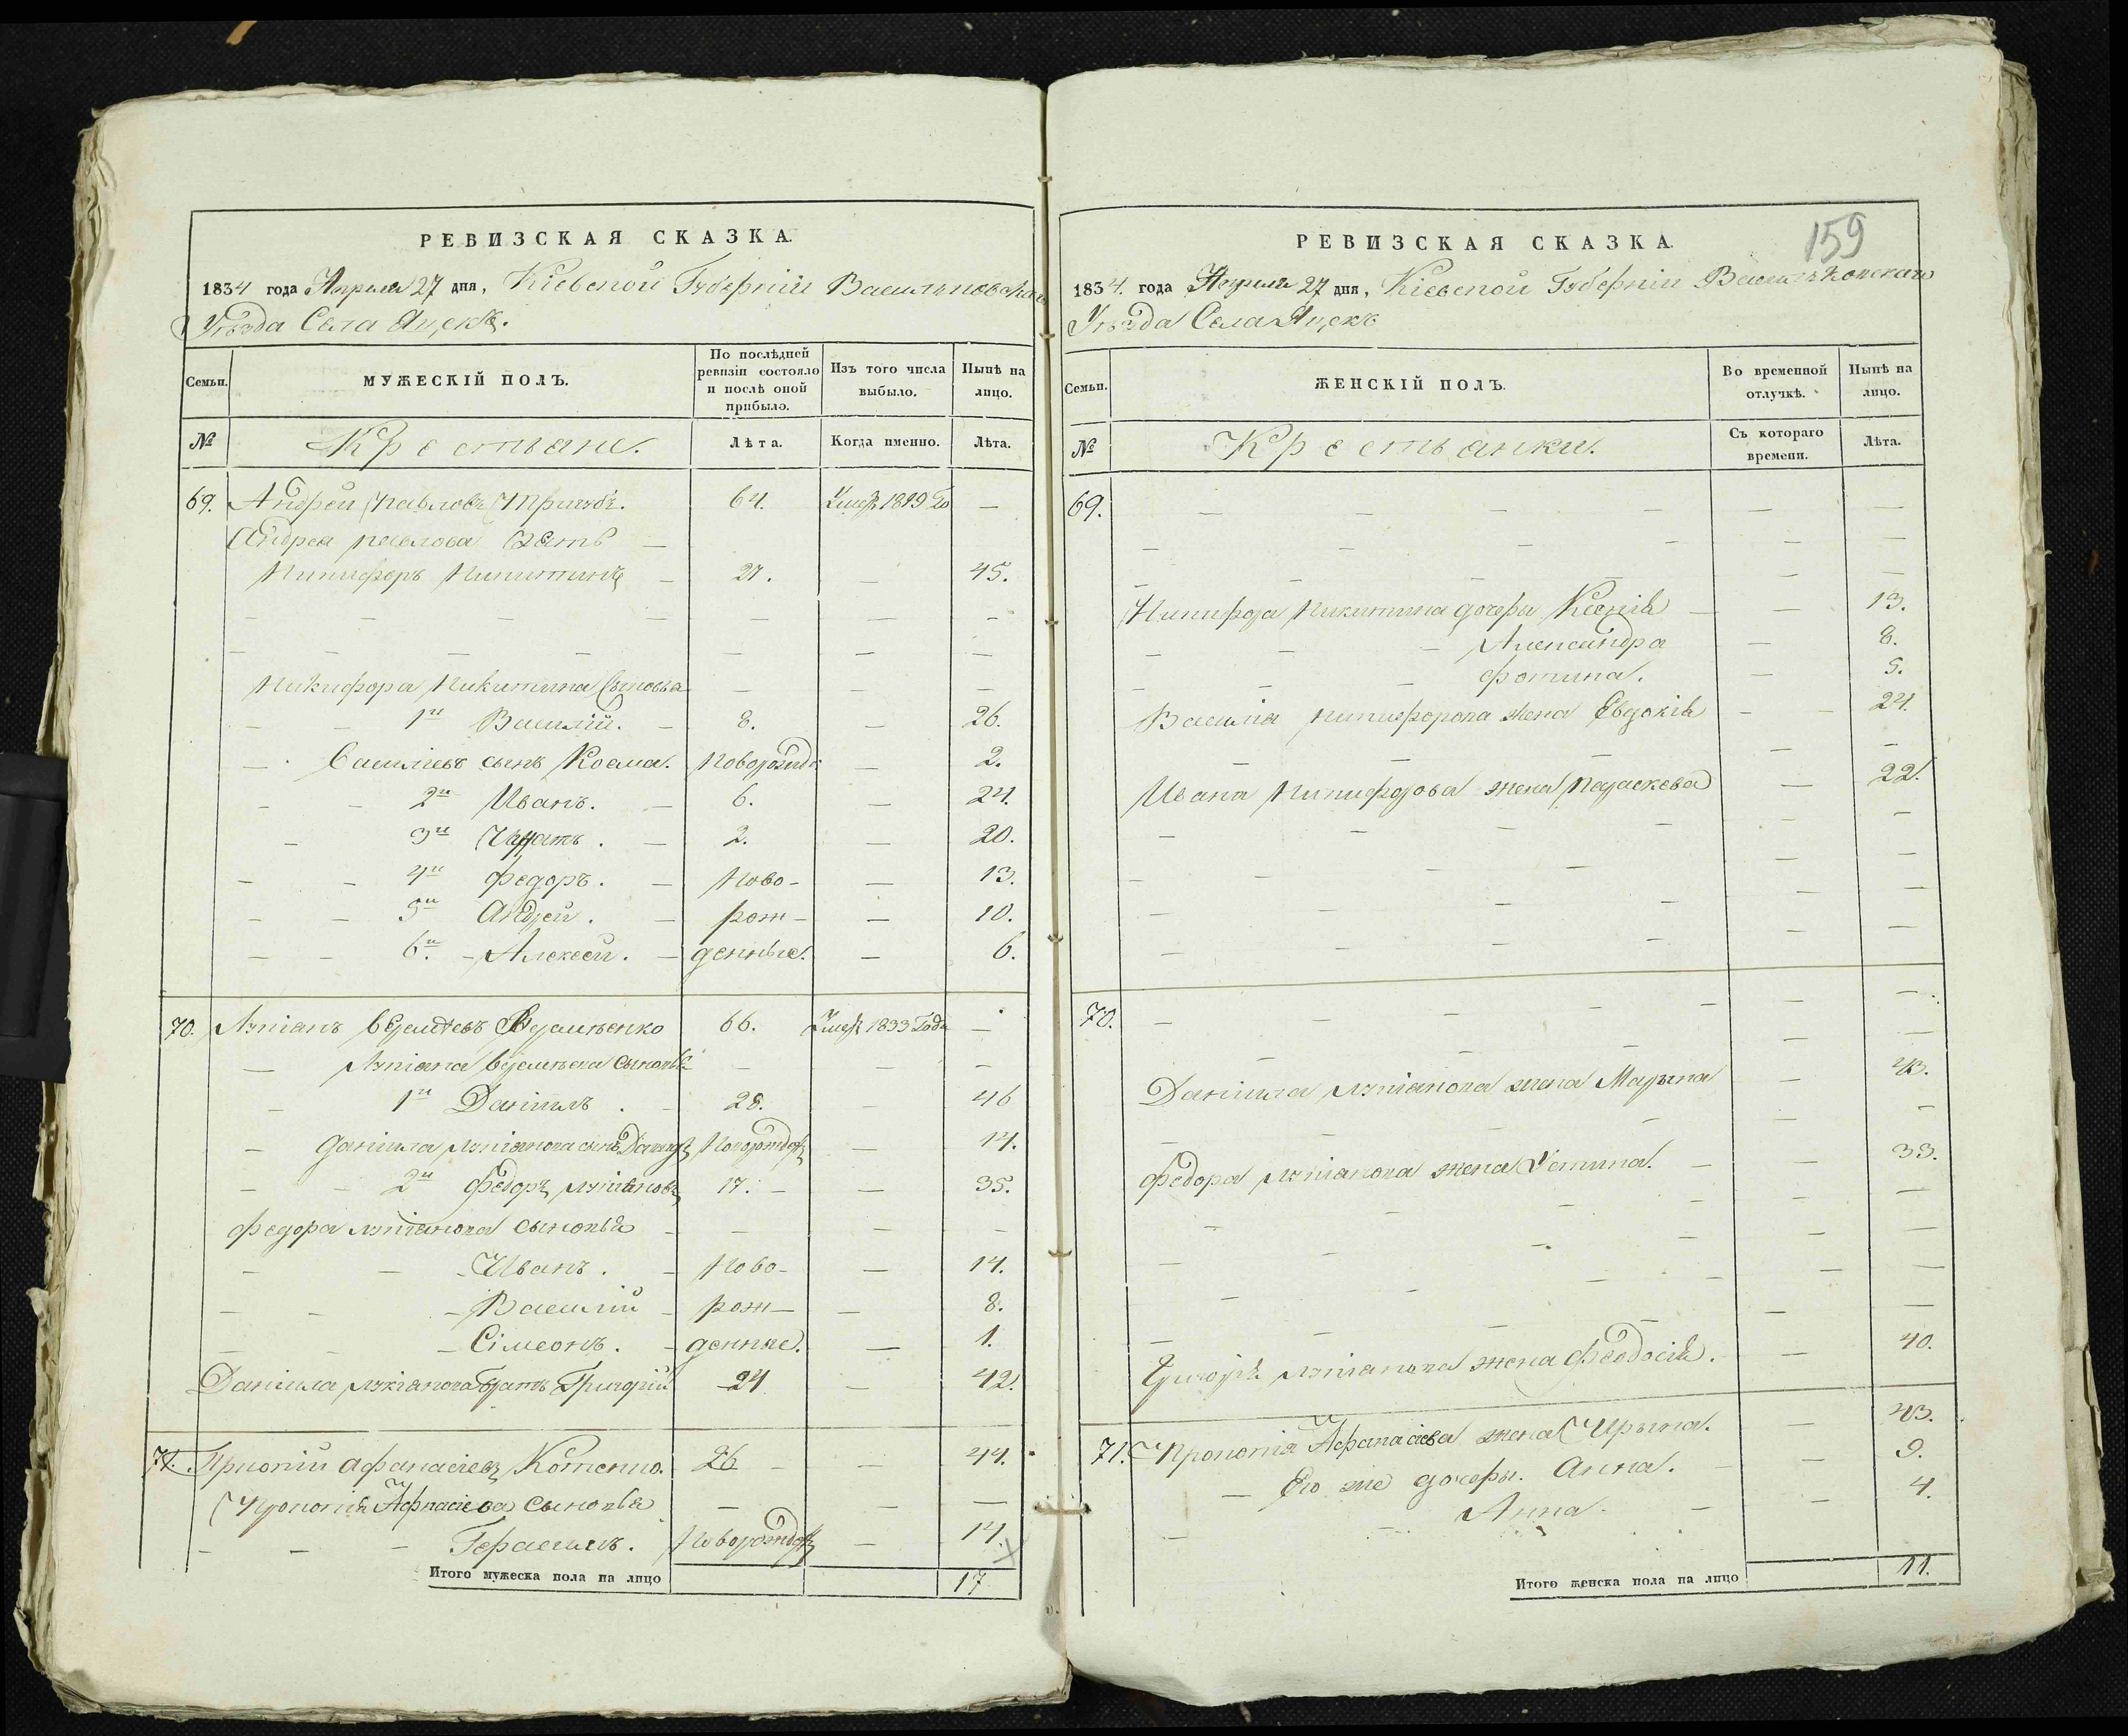 РЕВИЗСКАЯ СКАЗКА.
1834 года Апреля 27 дня, Кіевской Губерніи Васильковскаго
Уѣзда Села Яцекъ.
Семьи. МУЖЕСКІЙ ПОЛЪ. По послѣдней ревизіи состояло и послѣ оной прибыло. Изъ того числа выбыло. Нынѣ на лицо.
№ Крестьяне. Лѣта. Когда именно. Лѣта.
69. Андрей Павловъ 64. Умер 1819 Го —
Андрея Павлова зять —
Никифоръ Никитинъ — 27. — 45.
Никифора Никитина Сыновья — — —
1й Василій. — 8. — 26.
Василіевъ сынъ Косма. Новорожд: — 2.
2й Иванъ. — 6. — 24.
3й Игнатъ. — 2. — 20.
4й Федоръ. — Ново- — 13.
5й Андрей. — рож- — 10.
6й. Алексей. — денные. — 6.
70. Лукіанъ 66. Умер 1833 Года —
Лукіана сыновья — — —
1й Даніилъ. 28. — 46
Даніила Лукіанова сынъ Давидъ Новорожден — 14.
2й Федоръ Лукіановъ 17. — 35.
Федора Лукіанова сыновья — — —
Иванъ. — Ново- — 14.
Василій — рож- — 8.
Сімеонъ. — денные. — 1.
Даніила Лукіанова братъ Григорій 24 — 42.
71. Пркопій Афанасіевъ Котенко. 26 — 44.
Прокопія Афнасіева Сыновья — — —
Герасимъ. Новорожден — 14.
Итого мужеска пола на лицо 17
159
РЕВИЗСКАЯ СКАЗКА.
1834. года Апреля 27 дня, Кіевской Губерніи Васильковскаго
Уѣзда Села Яцекъ
Семьи. ЖЕНСКІЙ ПОЛЪ. Во временной отлучкѣ. Нынѣ на лицо.
№ Крестьянки. Съ котораго времени. Лѣта.
69.
Никифора Никитина дочери Ксенія — — 13.
Александра — 8.
Фотина. — 5.
Василія Никифорова жена Евдокія — — 24.
Ивана Никифорова жена Параскева — 22.
70.
Даніила Лукіанова жена Марына — 43.
Федора Лукіанова жена Устина. — — 33.
Григорія Лукіанова жена Феодосія. — 40.
71. Прокопія Афанасіева жена Ирына. — 43.
Его же дочеры. Анна. — 9.
Анна. — 4.
Итого женска пола на лицо 11.